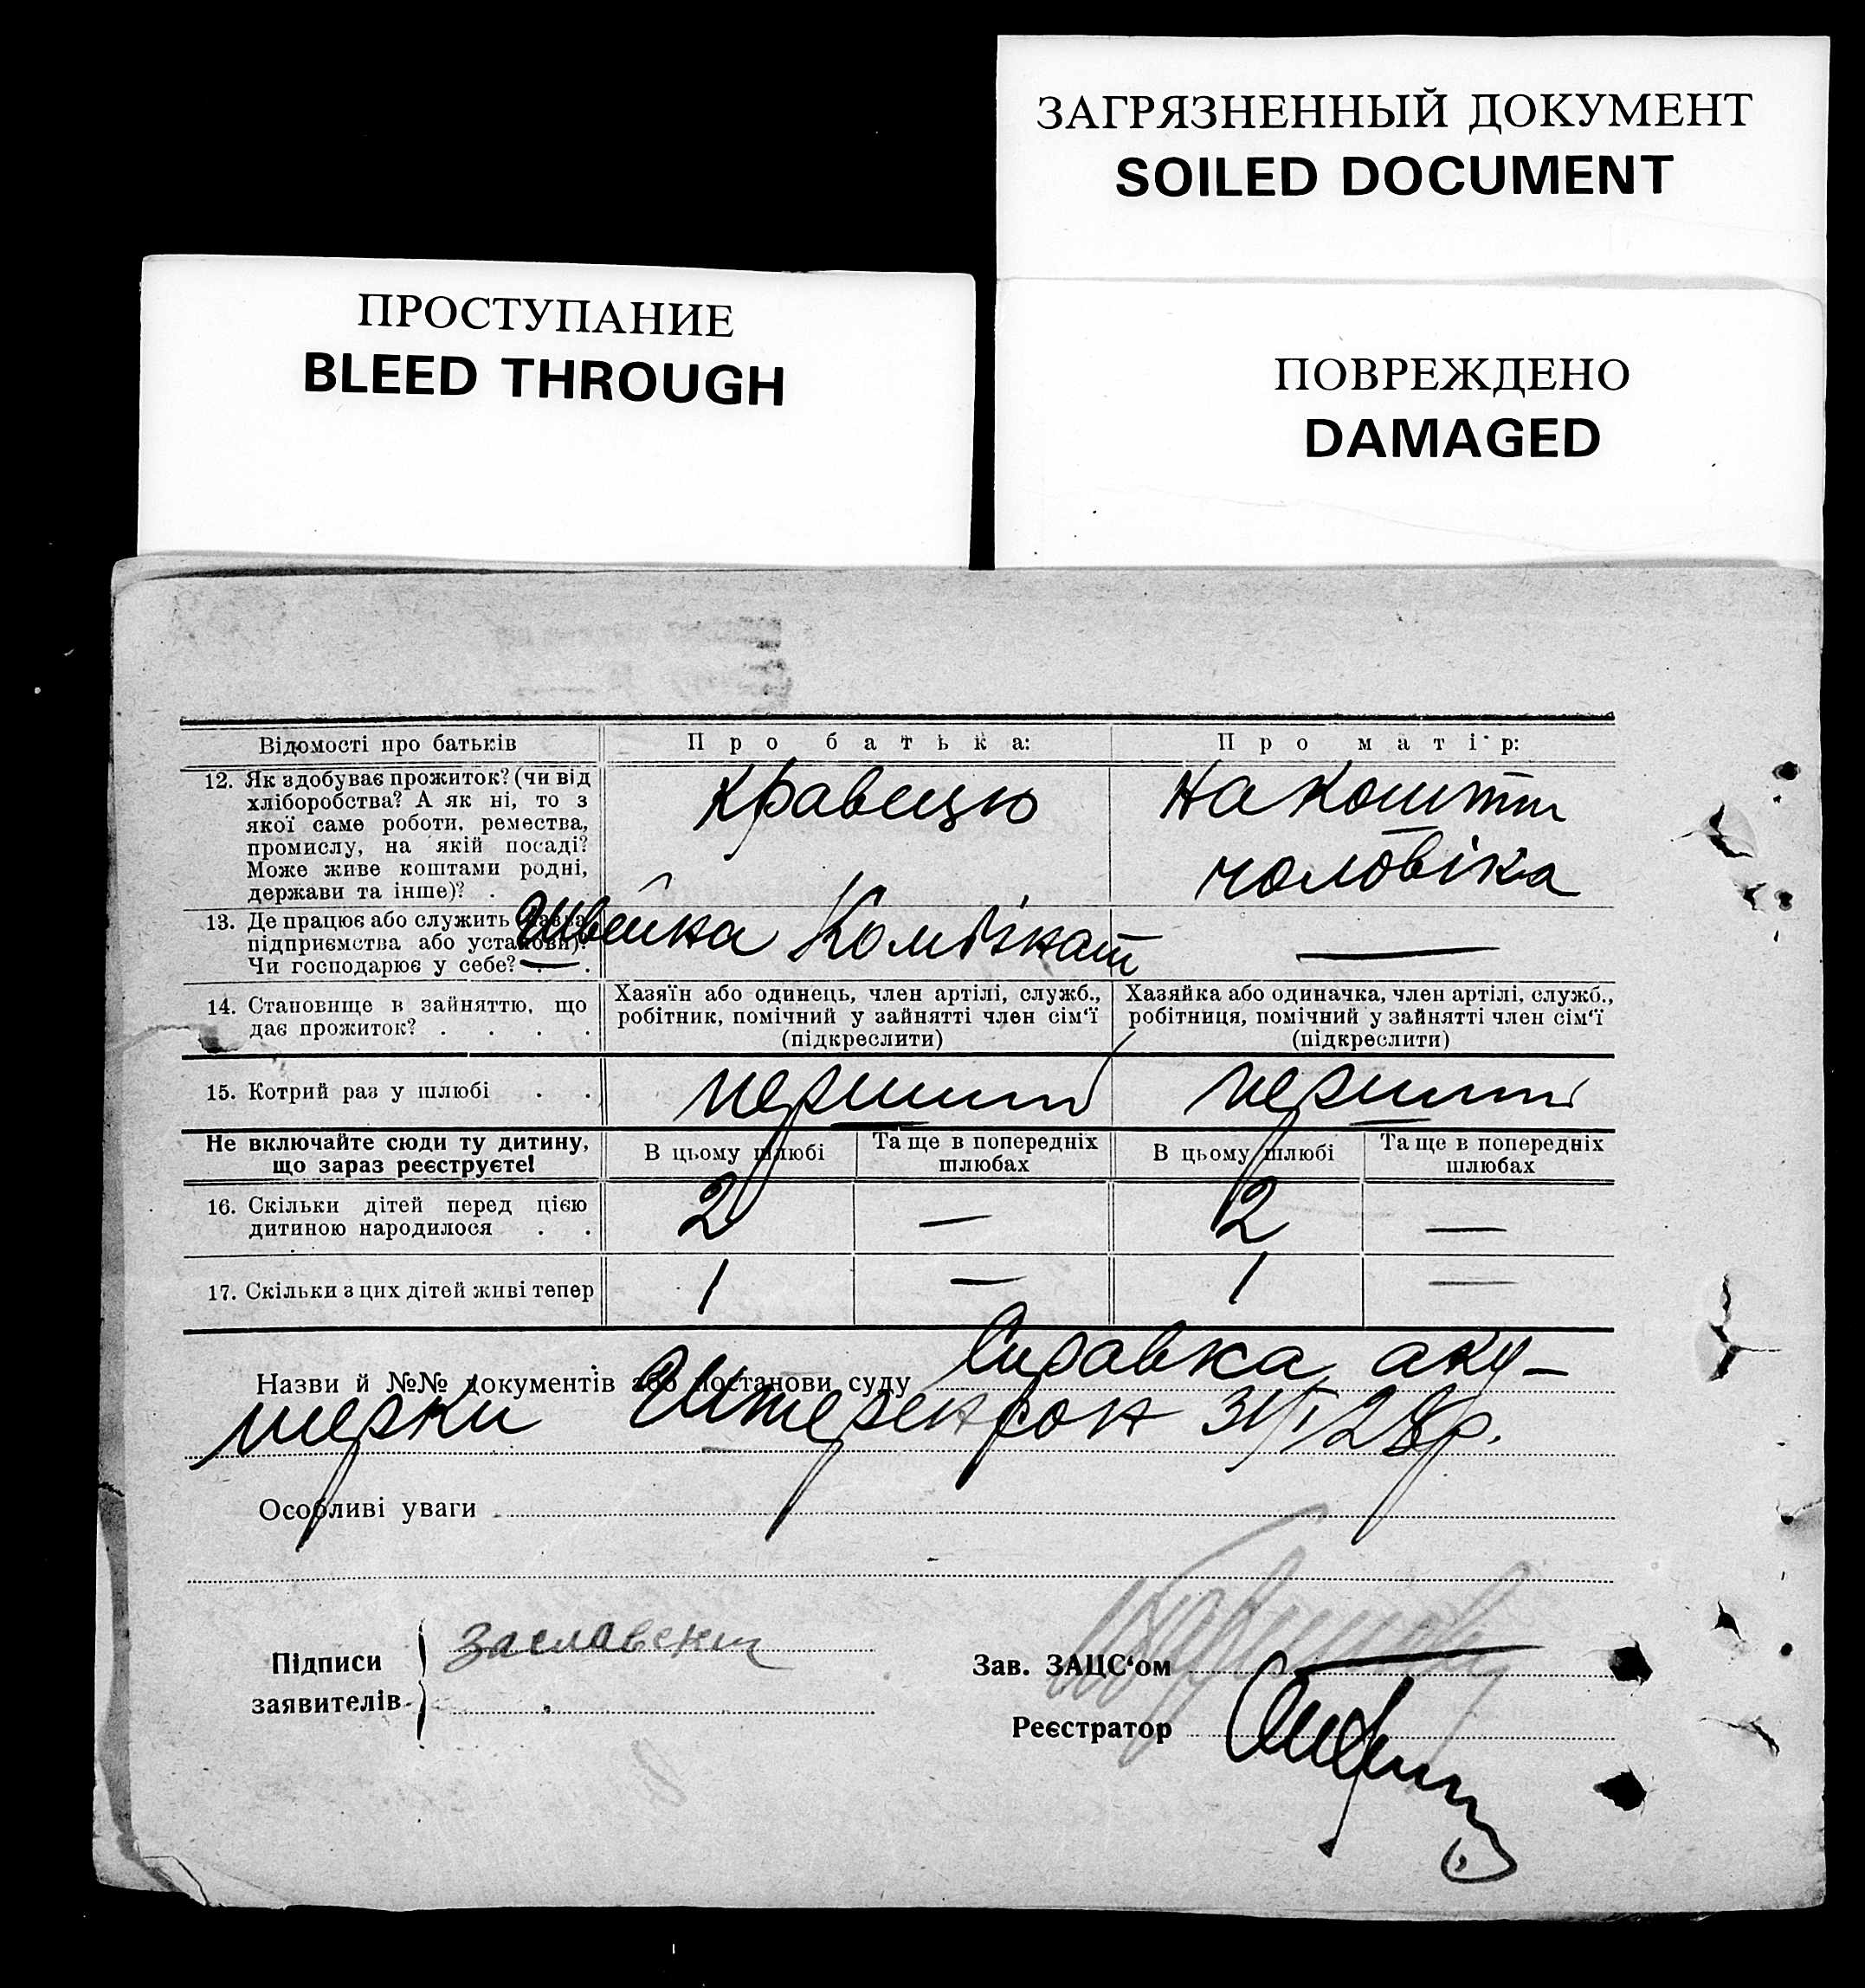 ЗАГРЯЗНЕННЫЙ ДОКУМЕНТ
SOILED DOCUMENT
ПРОСТУПАНИЕ
BLEED THROUGH
ПОВРЕЖДЕНО
DAMAGED
Відомості про батьків
Про батька:
Про матір:
12. Як здобуває прожиток? (чи від
хліборобства? А як ні, то з
якої саме роботи, ремества,
промислу, на якій посаді?
Може живе коштами родні,
держави та інше)? .
кравецю
на кошти
чоловіка
13. Де працює або служить (назва
підприємства або установи)?
Чи господарює у себе? . .
Швейка Комбінат
—
14. Становище в зайняттю, що
дає прожиток? . . . .
Хазяїн або одинець, член артілі, служб.,
робітник, помічний у зайнятті член сім‘ї
(підкреслити)
Хазяйка або одиначка, член артілі, служб.,
робітниця, помічний у зайнятті член сім‘ї
(підкреслити)
15. Котрий раз у шлюбі . .
перший
перший
Не включайте сюди ту дитину,
що зараз реєструєте!
В цьому шлюбі
Та ще в попередніх
шлюбах
В цьому шлюбі
Та ще в попередніх
шлюбах
16. Скільки дітей перед цією
дитиною народилося . .
2 — 2 —
17. Скільки з цих дітей живі тепер
1 — 1 —
Назви й №№ документів або постанови суду Справка аку-
шерки 31/I 28р.
Особливі уваги
Підписи
заявителів
Заславский
Зав. ЗАЦС‘ом
Реєстратор